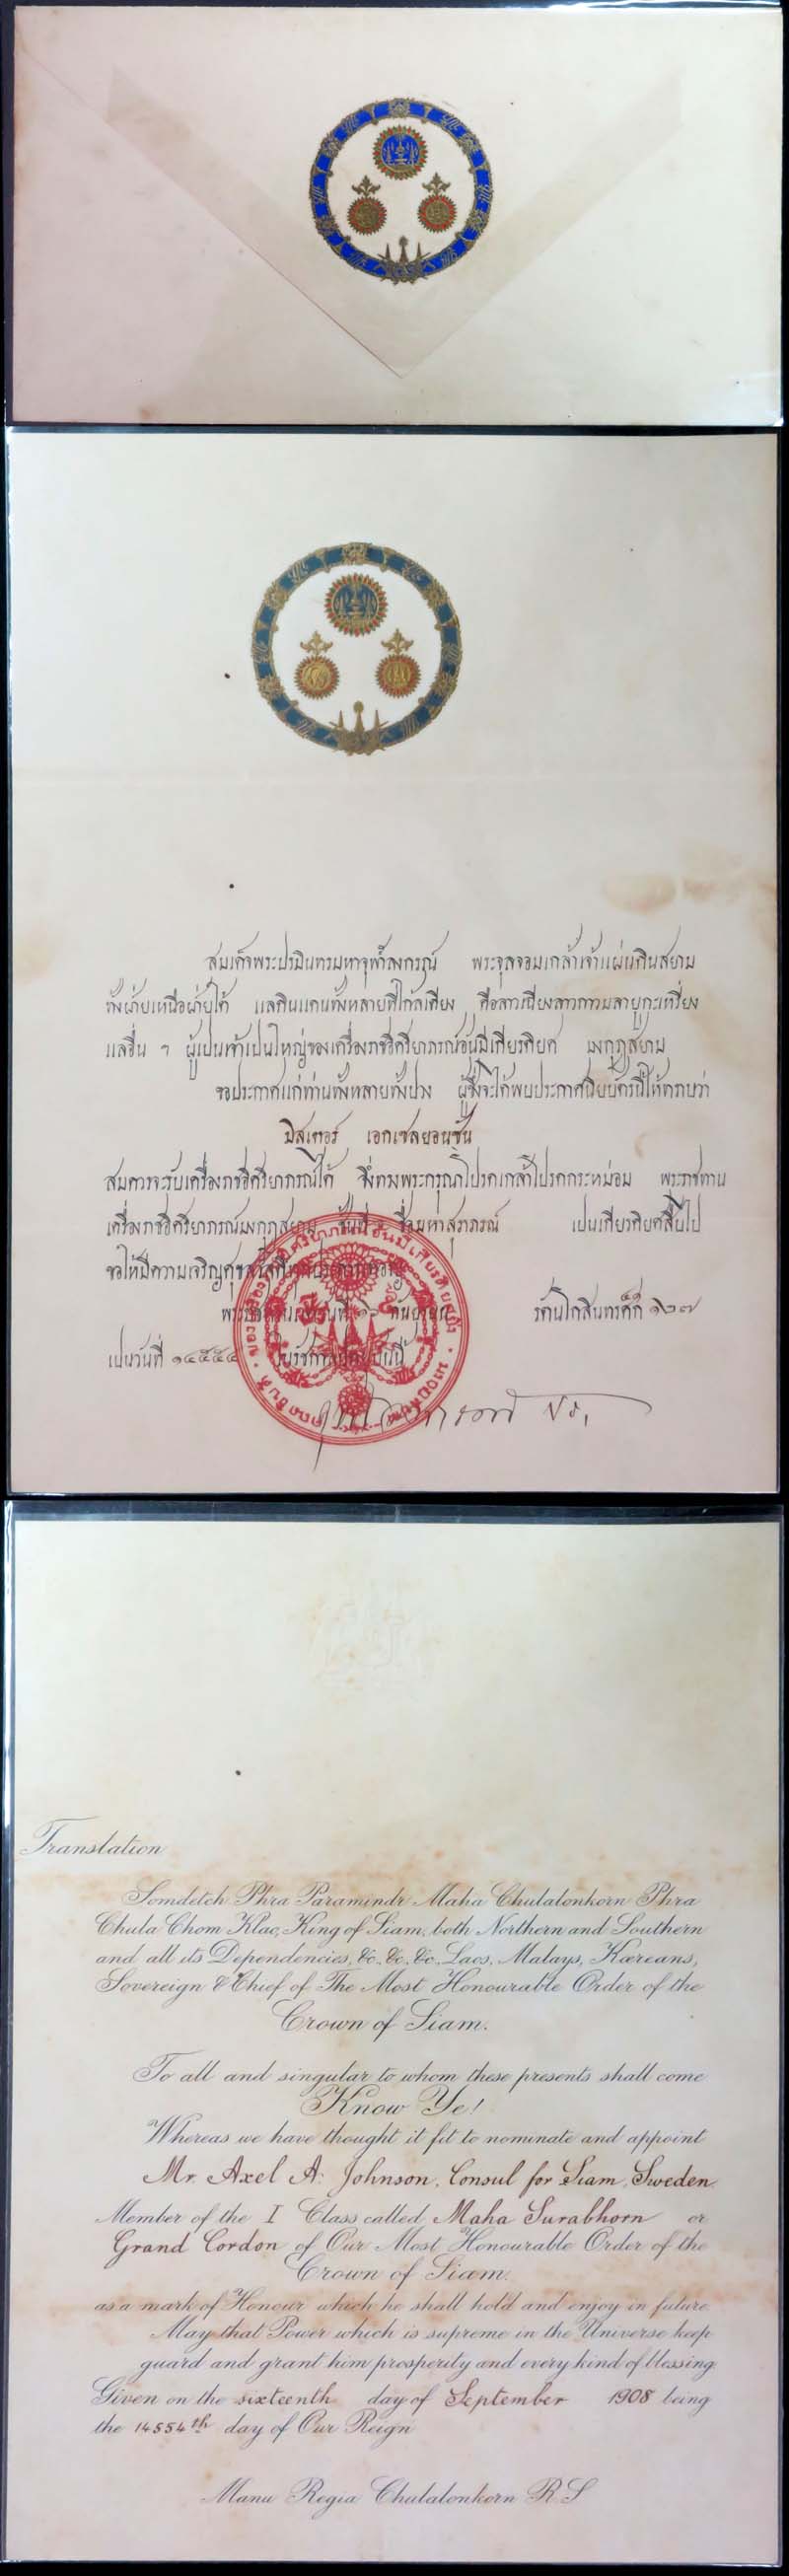 สมเด็จพระปรมินทรมหาจุฬาลงกรณ์ พระจุลจอมเกล้าเจ้าแผ่นดินสยาม
ทั้งฝ่ายเหนือฝ่ายใต้ แลดินแดนทั้งหลายที่ใกล้เคียง คือลาวเฉียงลาวกาวมลายูกะเหรี่ยง
แลอื่น ๆ ผู้เปนเจ้าเปนใหญ่ของเครื่องราชอิศริยาภรณ์อันมีเกียรติยศ มงกุฎสยาม
ขอประกาศแก่ท่านทั้งหลายทั้งปวง ผู้ซึ่งจะได้พบประกาศนียบัตรนี้ให้ทราบว่า
มิสเตอร์ เอกเซลยอนซัน
สมควรจะรับเครื่องราชอิศริยาภรณ์ได้ จึ่งทรงพระกรุณาโปรดเกล้าโปรดกระหม่อม พระราชทาน
เครื่องราชอิศริยาภรณ์มงกุฎสยาม ชั้นที่ ๑ ชื่อมหาสุราภรณ์ เปนเกียรติยศสืบไป
ขอให้มีความเจริญศุข
วันที่ ๑๖ กันยายน รัตนโกสินทรศก๔๑ ๑๒๗
เปนวันที่ ๑๔๕๕๔ ในรัชกาลปัตยุบันนี้
จุฬาลงกรณ์ ปร.
Translation
Somdetch Phra Paramindr Maha Chulalonkorn Phra
Chula Chom Klao, King of Siam, both Northern and Southern
and all its Dependencies, &c. &c. &c. Laos, Malays, Kareans,
Sovereign & Chief of The Most Honourable Order of the
Crown of Siam.
To all and singular to whom these presents shall come
Know Ye!
Whereas we have thought it fit to nominate and appoint
Mr. Axel A. Johnson, Consul for Siam, Sweden
Member of the I Class called Maha Surabhorn or
Grand Cordon of Our Most Honourable Order of the
Crown of Siam.
as a mark of Honour which he shall hold and enjoy in future.
May that Power which is supreme in the Universe keep
guard and grant him prosperity and every kind of blessing.
Given on the sixteenth day of September 1908 being
the 14554th day of Our Reign
Manu Regia Chulalonkorn R S